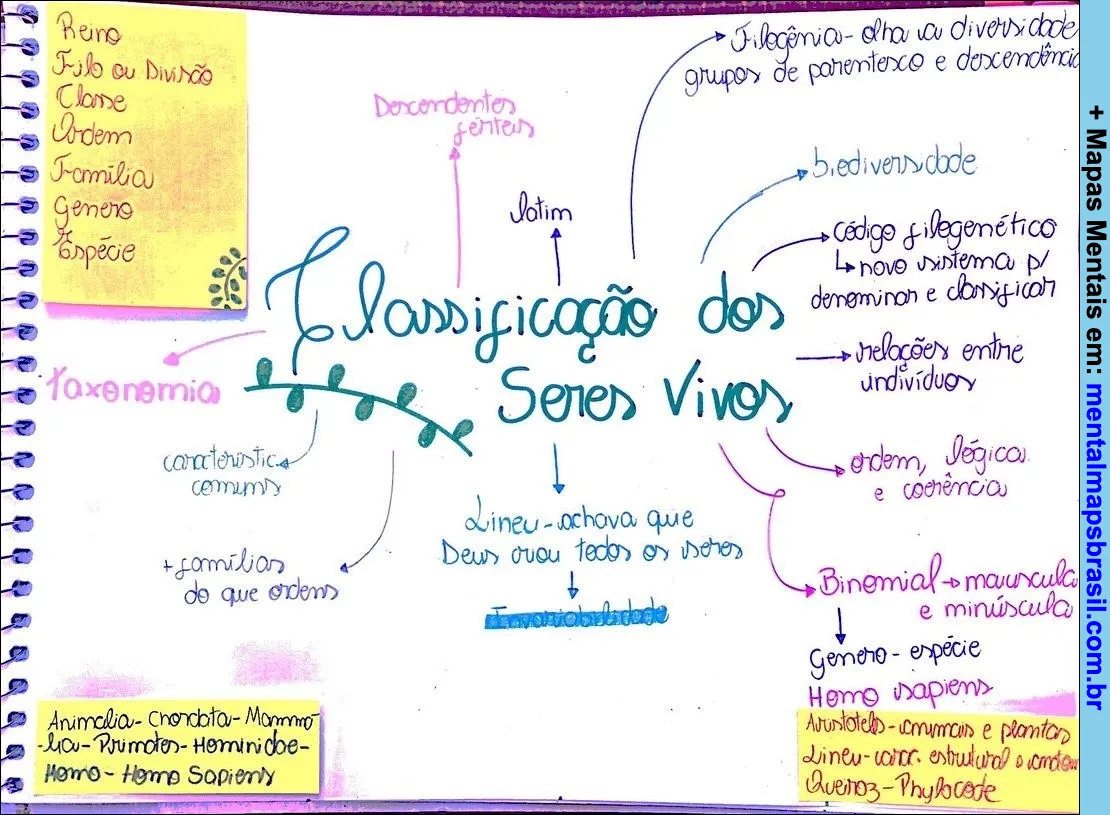 Reino
Filo ou Divisão
Classe
Ordem
Família
Genero
Espécie
Descendentes
férteis
latim
Filogênia - olha va diversidade
grupos de parentesco e descendência
biodiversidade
Código filogenético
↳ novo sistema p/
denominar e classificar
relações entre
indivíduos
Classificação dos
Seres Vivos
taxonomia
caracteristic.
comums
+ famílias
do que ordens
Lineu - achava que
Deus criou todos os seres
Invariabilidade
ordem, lógica
e coerência
Binomial → maiuscula
e minúscula
Genero - espécie
Homo sapiens
Animalia - Chordata - Mamma
-lia - Primates - Hominidae -
Homo - Homo Sapiens
Aristoteles - animais e plantas
Lineu - carac. estrutural
Queiroz - Phylocode
+ Mapas Mentais em: mentalmapsbrasil.com.br